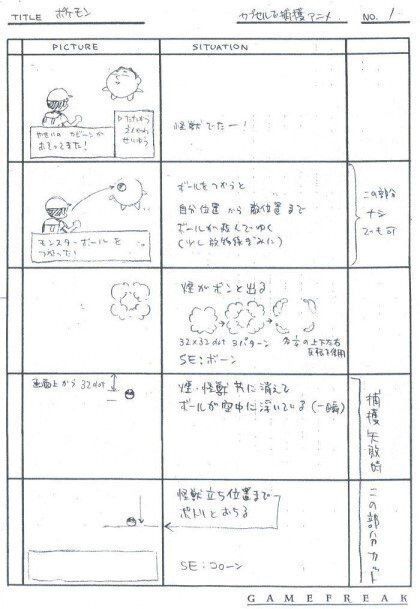 TITLE ポケモン
カプセルで捕獲アニメ
NO. 1
PICTURE
SITUATION
やせいの カビーンが
おそってきた!
▷たたかう
どうぐ
せいゆう
怪獣でたー!
モンスターボールを
つかった!
ボールをつかうと
自分位置から敵位置まで
ボールが飛んでゆく
(少し放物線ぎみに)
この部分
ナシ
でも可
煙がボンと出る
32×32dot 3パターン
各々の上下左右
反転を使用
SE:ボーン
画面上から32dot
煙・怪獣共に消えて
ボールが空中に浮いている(一瞬)
捕獲失敗時
怪獣立ち位置まで
ポトリとおちる
SE:コローン
この部分カット
GAMEFREAK